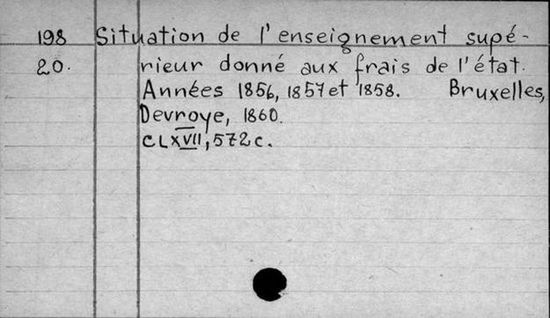 198 Situation de l'enseignement supé-
20. rieur donné aux frais de l'état.
Années 1856, 1857 et 1858. Bruxelles,
Devroye, 1860.
CLXVII, 572 c.